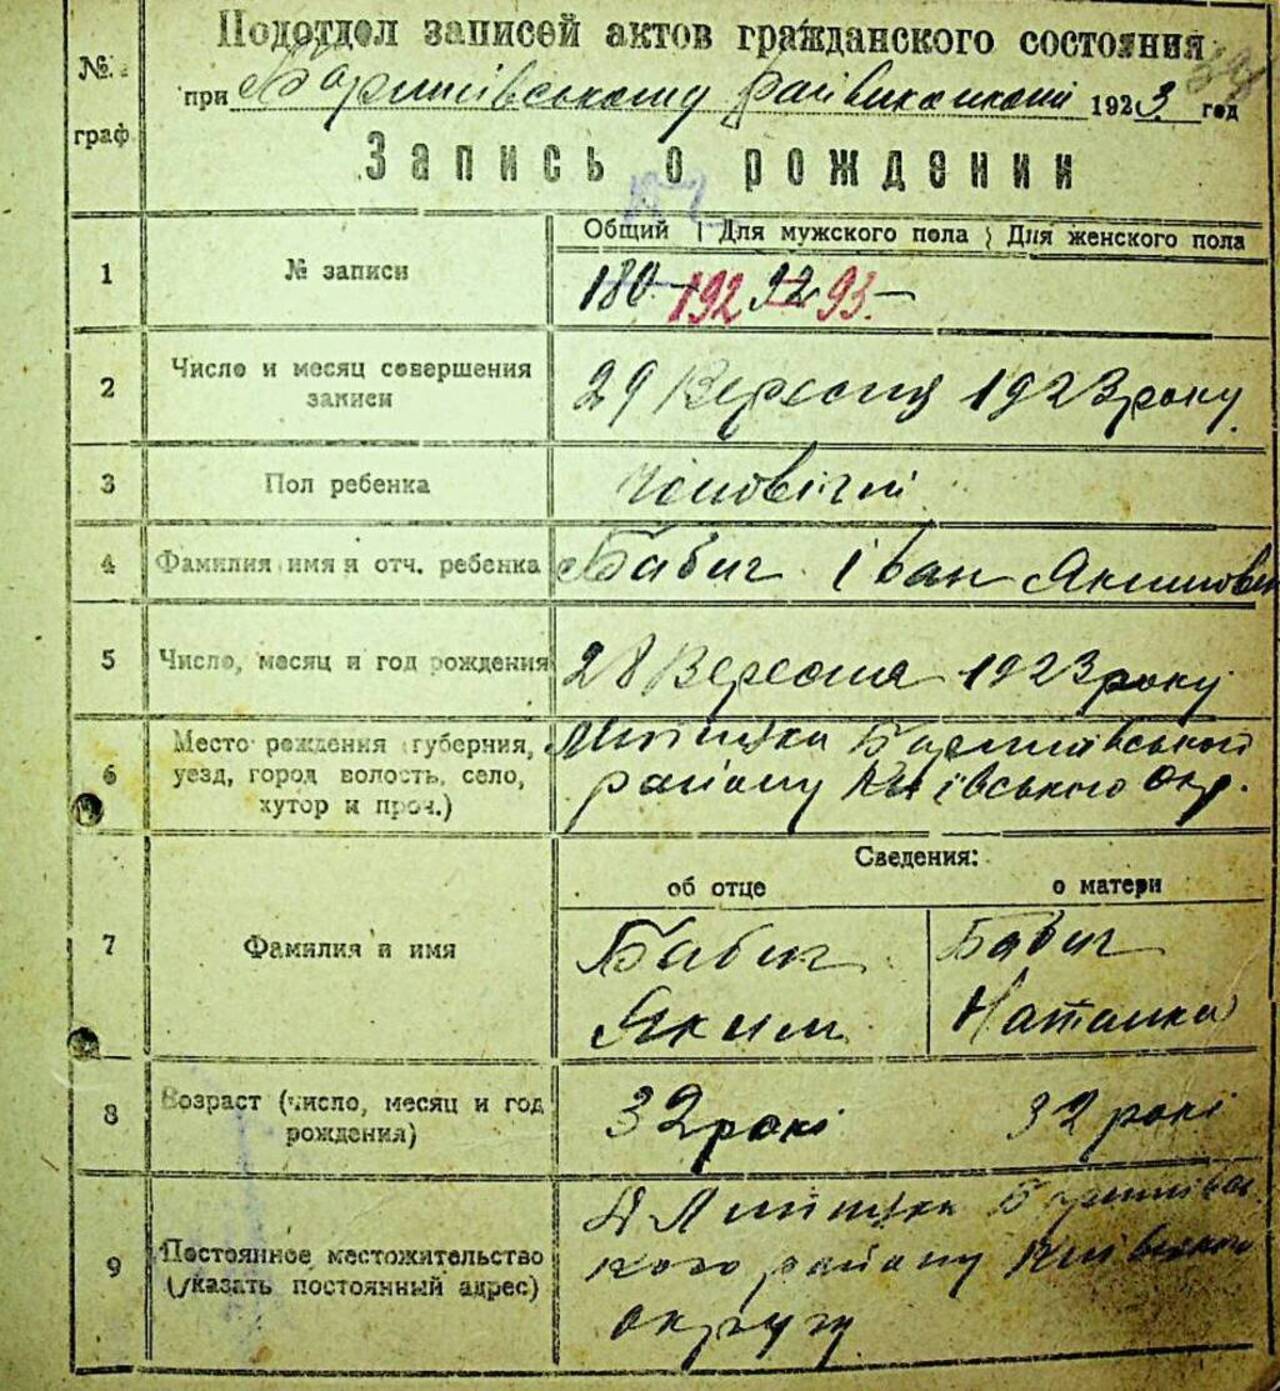 №
граф
Подотдел записей актов гражданского состояния
при Баришівському Райвиконкомі 1923 год
Запись о рождении
Общий Для мужского пола Для женского пола
1 № записи 180 192 92 93.—
2 Число и месяц совершения записи 29 Вересня 1923 року
3 Пол ребенка Чоловічий
4 Фамилия имя и отч. ребенка Бабич Іван Якимович
5 Число, месяц и год рождения 28 Вересня 1923 року
6 Место рождения (губерния, Баришівського
уезд, город волость, село, району Київського Окр.
хутор и проч.)
Сведения:
об отце о матери
7 Фамилия и имя Бабич Бабич
Яким Наталка
8 Возраст (число, месяц и год рождения) 32 рокі 32 рокі
9 Постоянное местожительство Баришівсь
(указать постоянный адрес) кого району Київського
округу